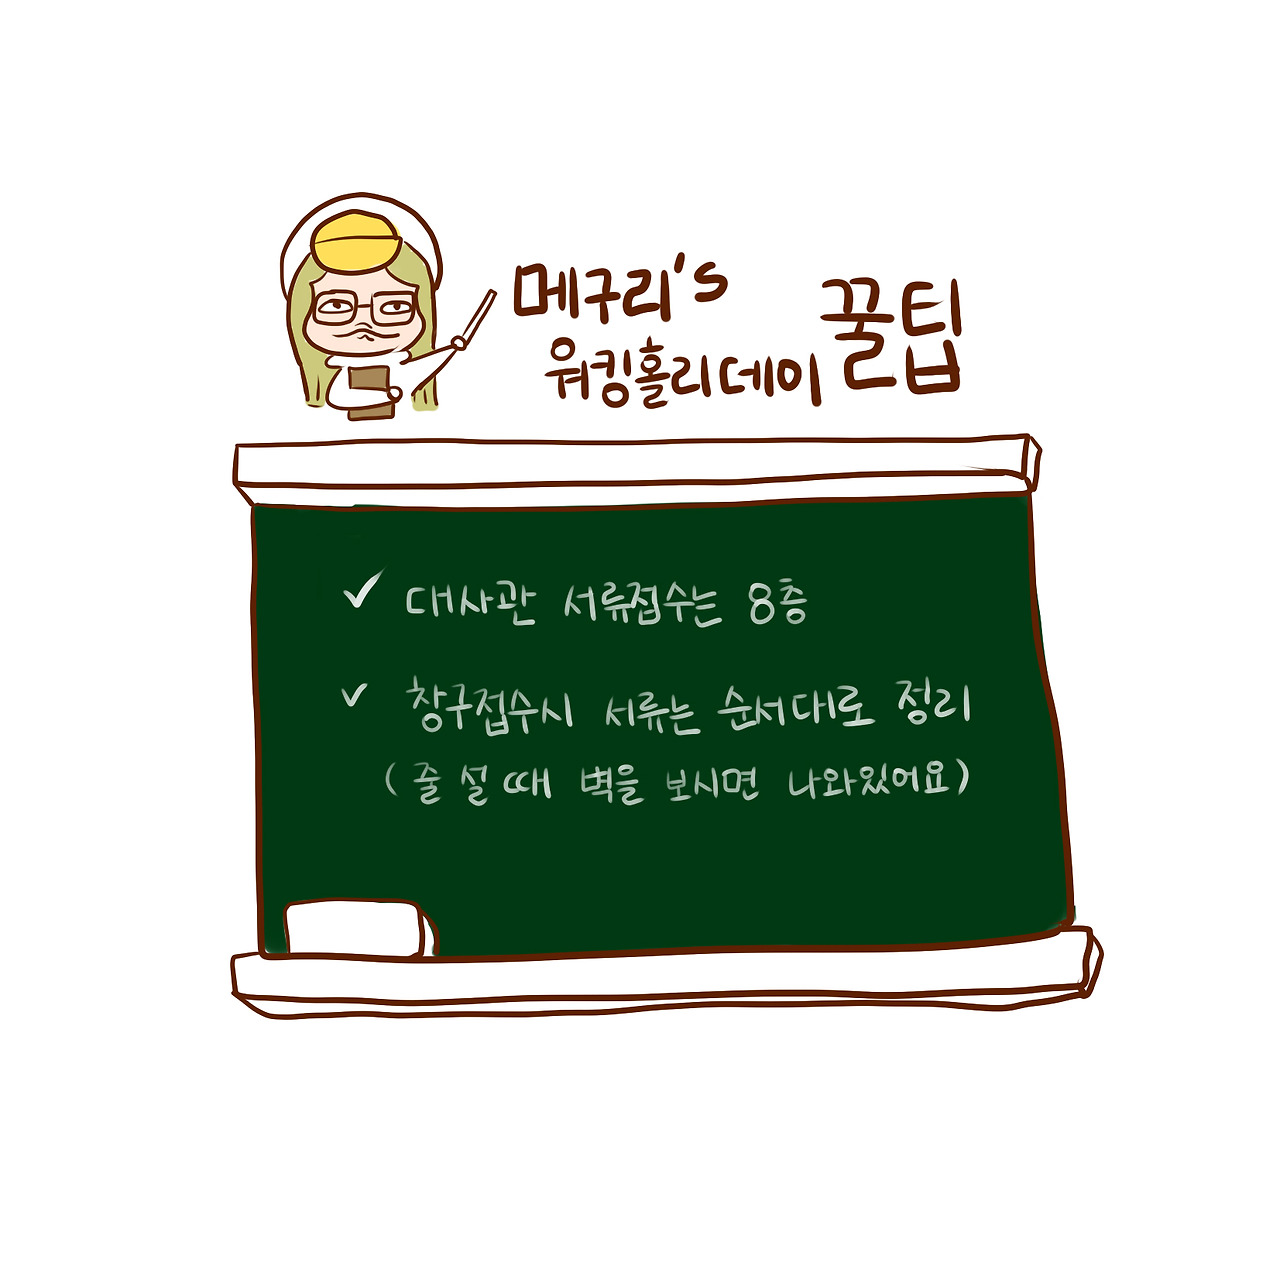 메구리's
워킹홀리데이 꿀팁
✓ 대사관 서류접수는 8층
✓ 창구접수시 서류는 순서대로 정리
(줄 설 때 벽을 보시면 나와있어요)